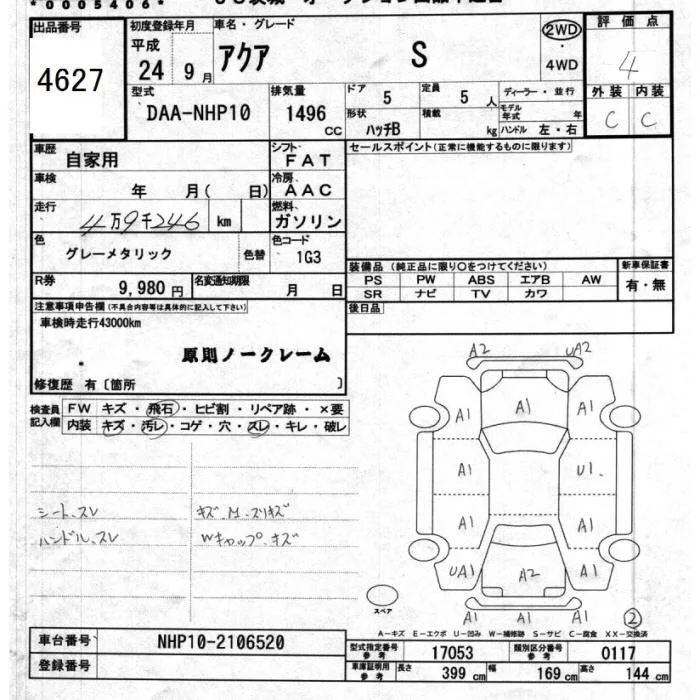 *0005406*
出品番号
4627
初度登録年月
平成
24 9月
車名・グレード
アクア S
2WD
・
4WD
評価点
4
外装 内装
C C
型式
DAA-NHP10
排気量
1496
CC
ドア 5
定員 5人
形状
ハッチB
積載 kg
ディーラー・並行
モデル年式 年
ハンドル 左・右
車歴
自家用
シフト
FAT
セールスポイント(正常に機能するものに限ります)
車検
年 月( 日)
冷房
AAC
走行
4万9千246 km
燃料
ガソリン
色
グレーメタリック
色替
色コード
1G3
R券
9,980円
名変通知期限
月 日
装備品 (純正品に限り〇をつけてください)
PS PW ABS エアB AW
SR ナビ TV カワ
新車保証書
有・無
後日品
注意事項申告欄(不具合内容等は具体的に記入して下さい)
車検時走行43000km
原則ノークレーム
修復歴 有〔箇所 〕
検査員
記入欄
FW キズ・飛石・ヒビ割・リペア跡・×要
内装 キズ・汚レ・コゲ・穴・スレ・キレ・破レ
シート、スレ
ハンドル、スレ
キズ、M、スリキズ
Wキャップ、キズ
A2 UA2
A1 A1 A1
A1 U1.
A1 A1
UA1 A2 A1
A1 A1 A1
スペア
②
A-キズ E-エクボ U-凹み W-補修跡 S-サビ C-腐食 XX-交換済
車台番号
NHP10-2106520
登録番号
型式指定番号
参考
17053
類別区分番号
参考
0117
車庫証明用
参考
長さ 399cm 幅 169cm 高さ 144cm